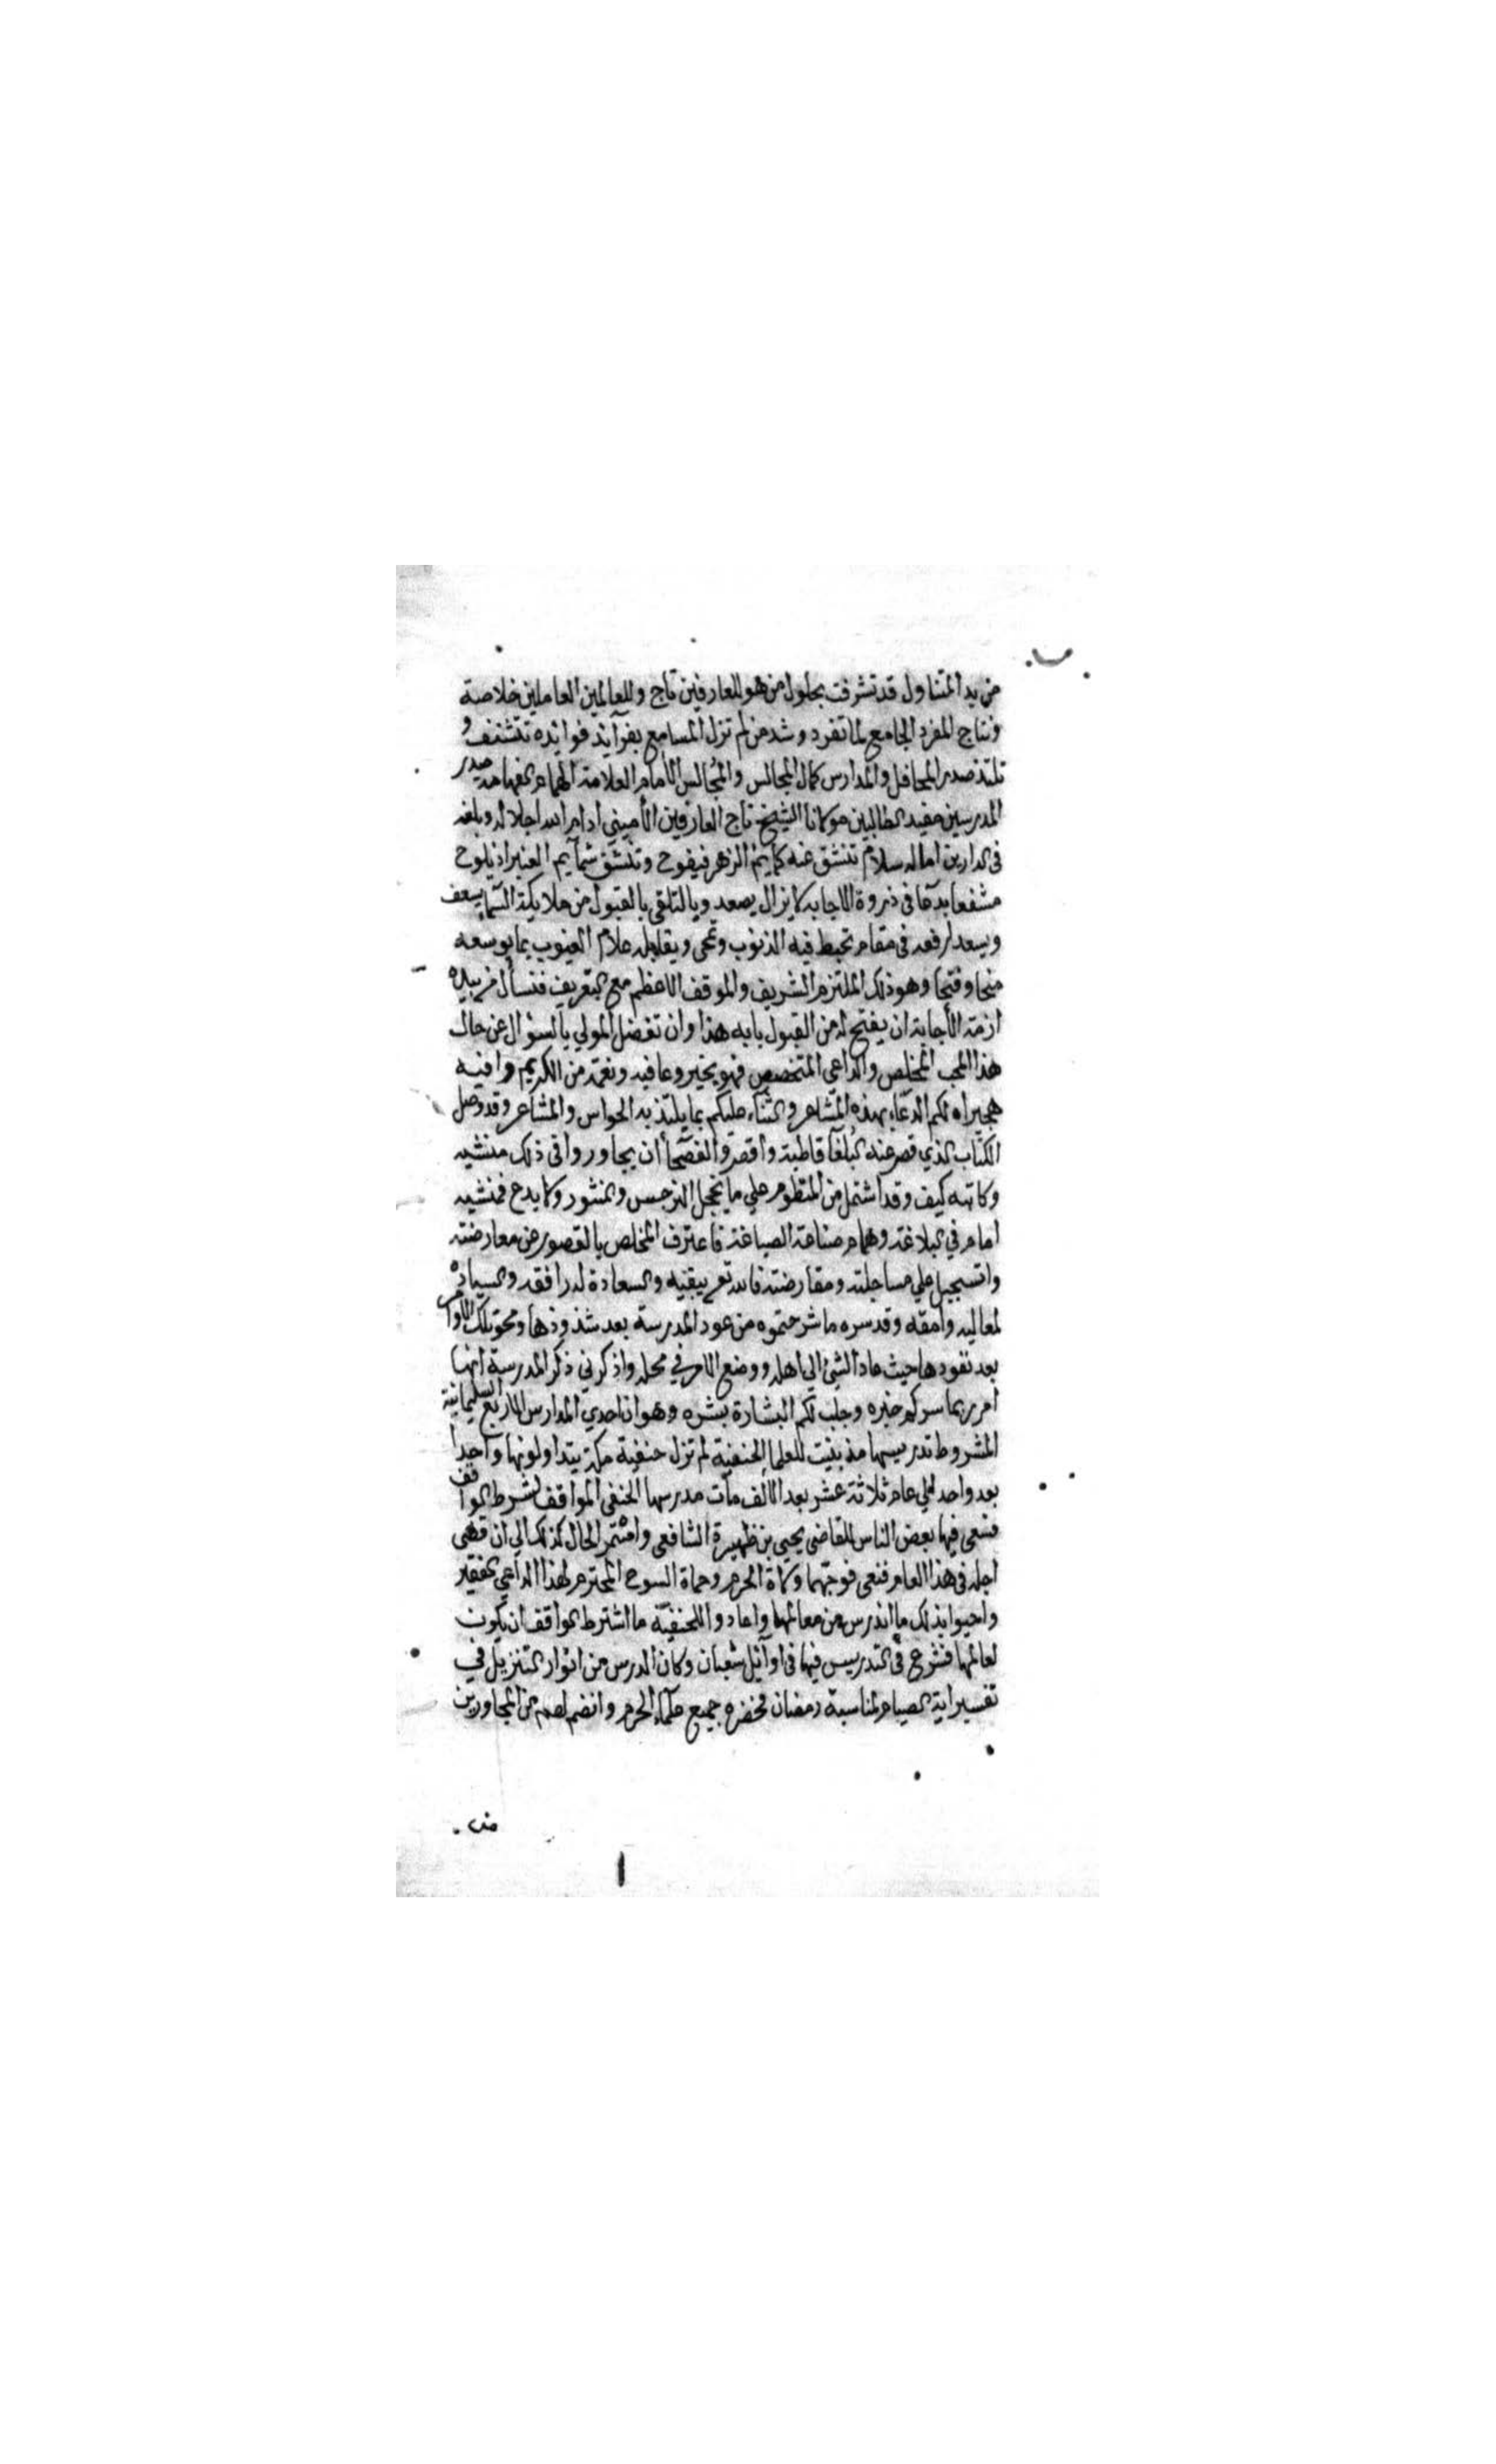 من يد المتناول قد تشرفت بحلول من هو للعارفين تاج وللعالمين العاملين خلاصة
ونتاج المفرد الجامع لما تفرد وشد من لم تزل المسامع بفرآيد فوائده تتشنف و
تلتذ صدر المحافل والمدارس كمال المجالس والمُجالس الامام العلامة الهمام الفهامه صدر
المدرسين مفيد الطالبين مولانا الشيخ تاج العارفين الأميني ادام الله اجلاله وبلغه
في الدارين اماله سلام تنشق عنه كمايم الزهر فيفوح وتنشق شمآيم العنبر اذ يلوح
مشفعا بدعا في ذروة الاجابه لا يزال يصعد وبالتلقي بالقبول من ملايكة السَّما يسعف
ويسعد لرفعه في مقام تحبط فيه الذنوب وتمحى ويقابله علام الغيوب بما يوسعه
منحا وفتحا وهو ذلك الملتزم الشريف والموقف الاعظم مع التعريف فنسأل من بيده
ازمة الأجابة ان يفتح له من القبول بابه هذا وان تفضل المولي بالسؤال عن حال
هذا المحب المخلص والداعي المتخصص فهو بخير وعافيه ونعمة من الكريم وافيه
هجيراه لكم الدعاء بهذه المشاعر والثناء عليكم بما يلتذ به الحواس والمشاعر وقد وصل
الكتاب الذي قصر عنه البلغآ قاطبة وأقصر والفصحا أن يجاوروا في ذلك منشيه
وكاتبه كيف وقد اشتمل من المنظوم علي ما يخجل النرجس والمنثور ولا بدع فمنشيه
امام في البلاغة وهمام صناعة الصياغة فاعترف المخلص بالقصور عن معارضته
والتسجيل علي مساجلته ومقارضته فالله تعـ يبقيه والسعادة له رافقه والسيادة
لمعاليه وامقه وقد سره ما شرحتموه من عود المدرسة بعد شذوذها ومحو تلك الاوامر
بعد نفوذها حيث عاد الشئ الي اهله ووضع الامر في محله واذكرني ذكر المدرسة انها
امر ربما سركم خبره وجلب لكم البشارة بشره وهو ان احدي المدارس الاربع السليمانية
المشروط تدريسها مذ بنيت للعلما الحنفية لم تزل حنفية مكة يتداولونها واحدا
بعد واحد الي عام ثلاثة عشر بعد الالف مات مدرسها الحنفي الموافق لشرط الواقف
فسعى فيها بعض الناس للقاضي يحيى بن ظهيرة الشافعي واستمر الحال كذلك الي ان قضى
اجله في هذا العام فنعي فوجهها ولاة الحرم وحماة السوح المحترم لهذا الداعي الفقير
واحيوا بذلك ما اندرس من معالمها واعادوا للحنفيّة ما اشترط الواقف ان يكون
لعالمها فشرع في التدريس فيها في اوآئل شعبان وكان الدرس من انوار التنزيل في
تفسير اية الصيام لمناسبة رمضان فحضره جميع علمآء الحرم وانضم لهم من المجاورين
من